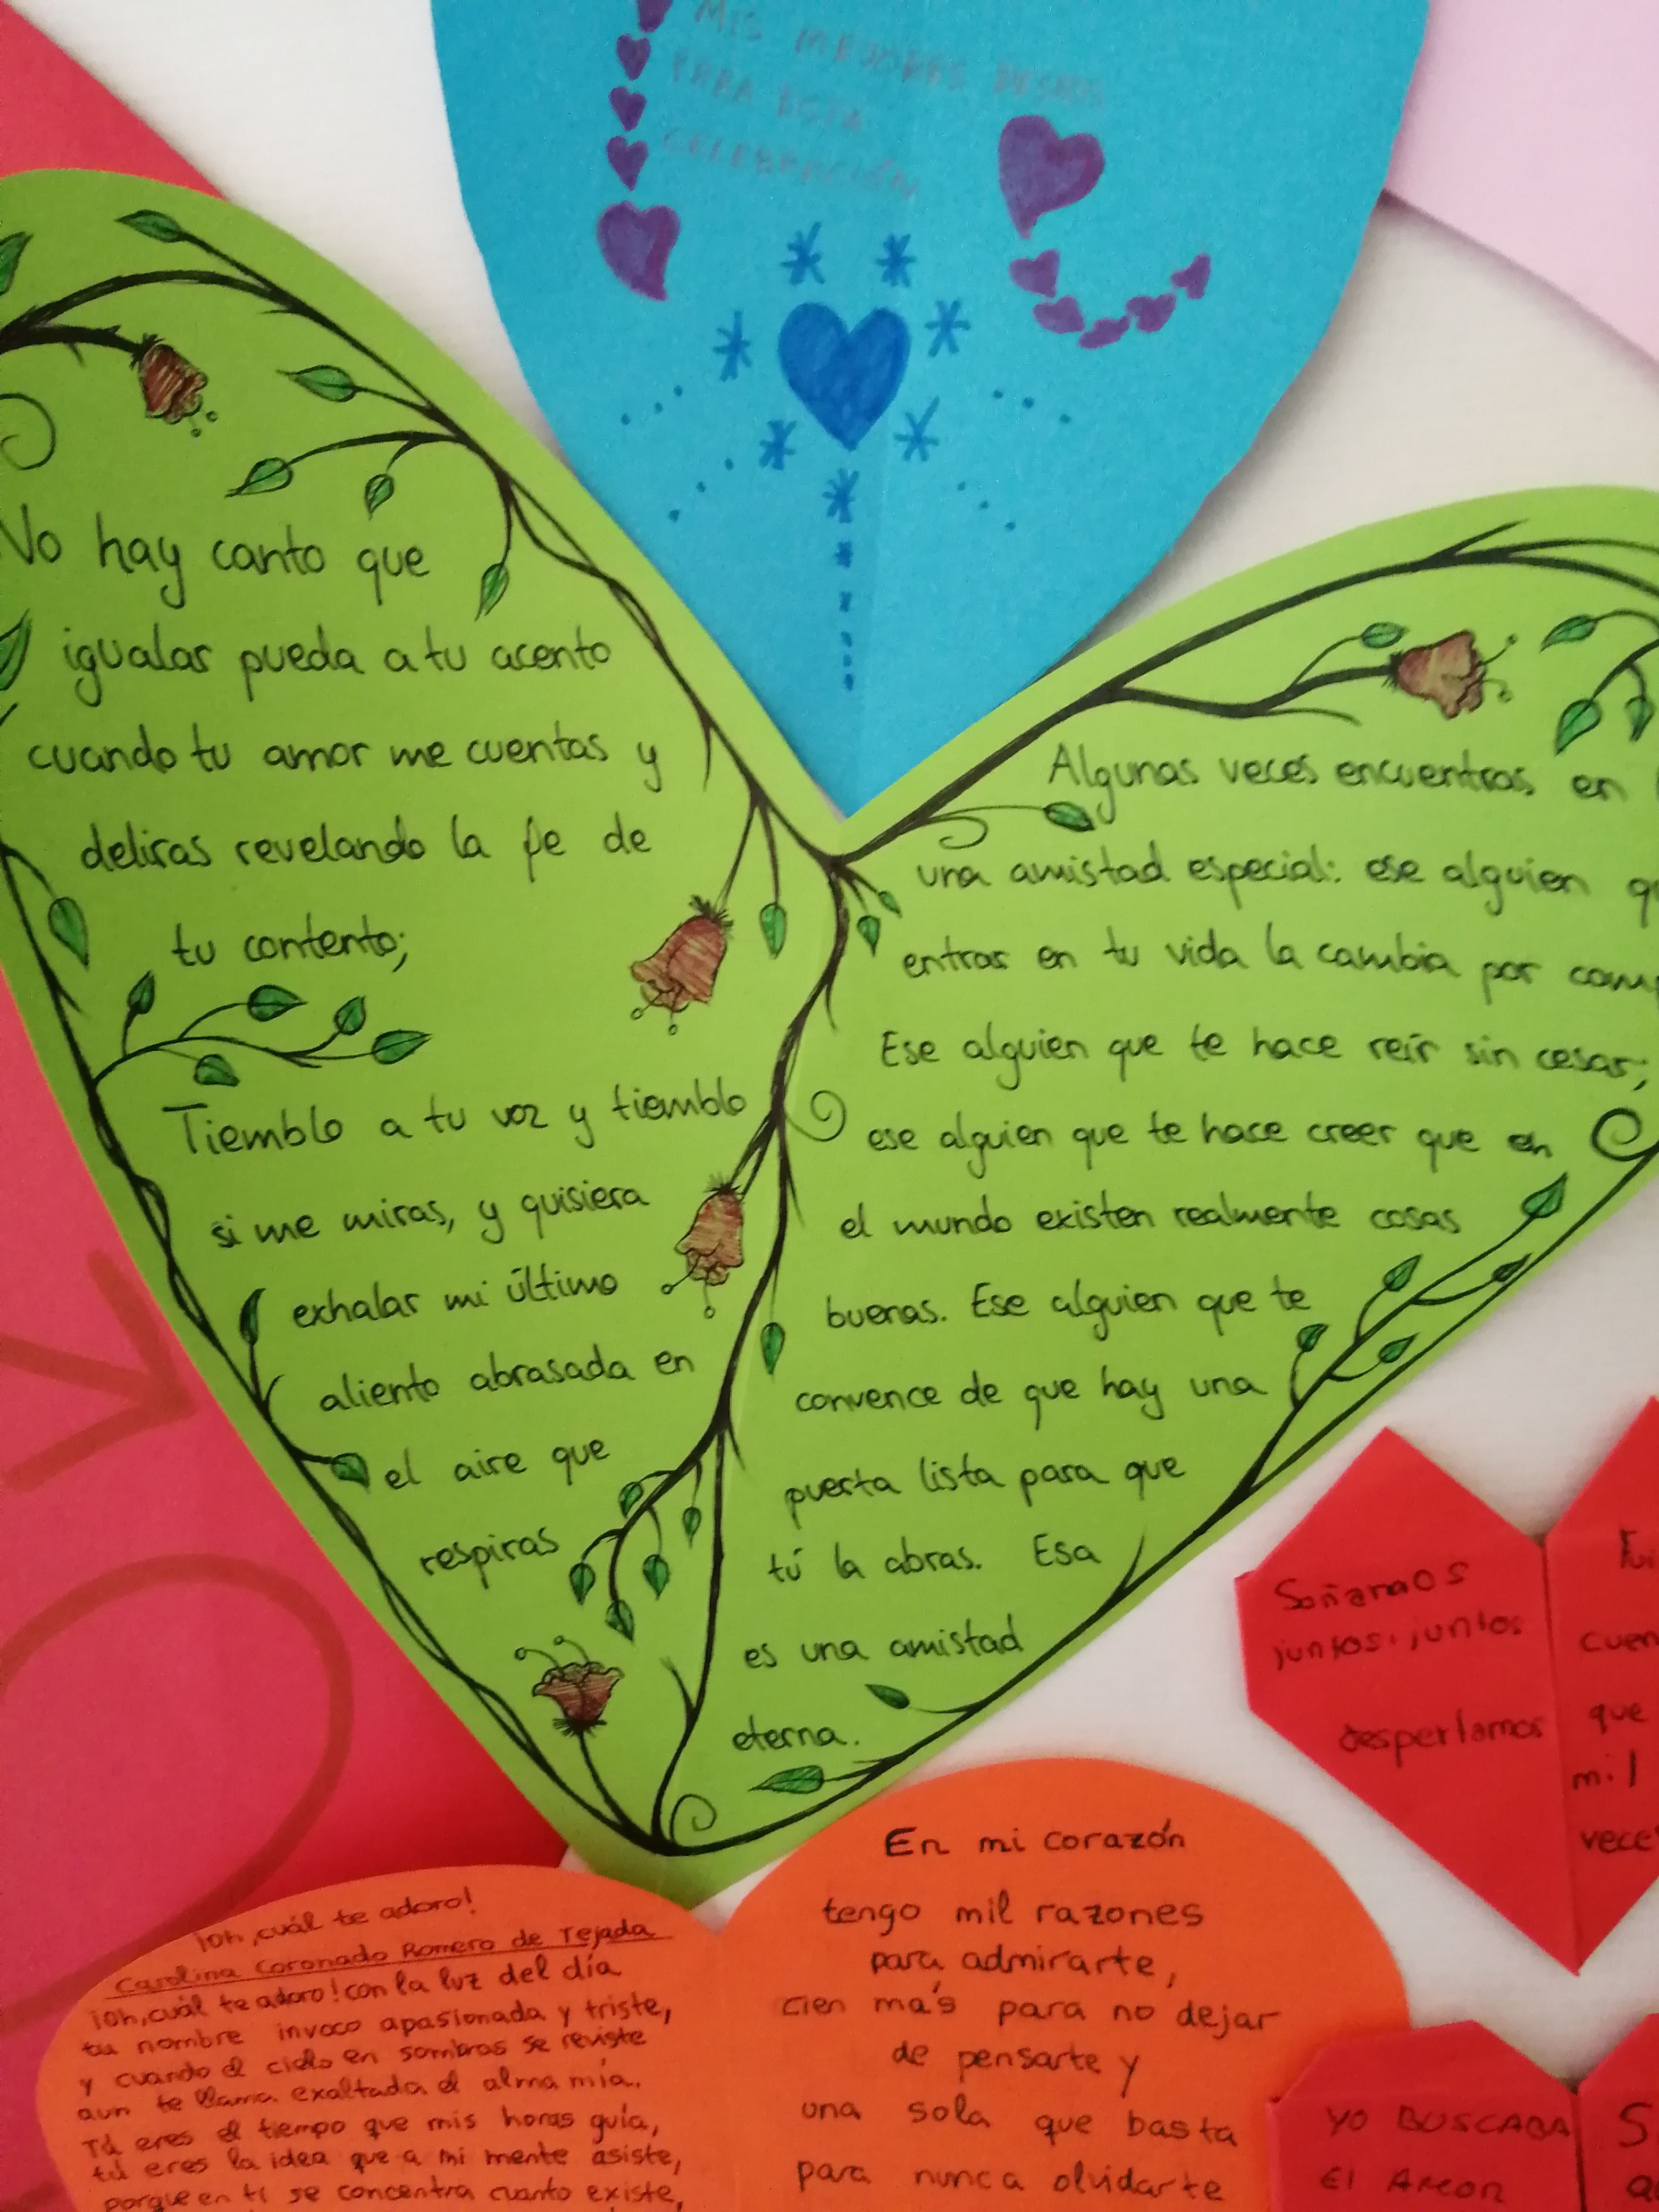 MIS MEJORES DESEOS
PARA ESTA
CELEBRACIÓN
No hay canto que
igualar pueda a tu acento
cuando tu amor me cuentas y
deliras revelando la fe de
tu contento;
Tiemblo a tu voz y tiemblo
si me miras, y quisiera
exhalar mi último
aliento abrasada en
el aire que
respiras
Algunas veces encuentras en
una amistad especial: ese alguien
entrar en tu vida la cambia por
Ese alguien que te hace reír sin cesar;
ese alguien que te hace creer que en
el mundo existen realmente cosas
buenas. Ese alguien que te
convence de que hay una
puerta lista para que
tú la abras. Esa
es una amistad
eterna.
Soñamos
juntos, juntos
despertamos
que
mil
¡Oh, cuál te adoro!
Carolina Coronado Romero de Tejada
¡Oh, cuál te adoro! con la luz del día
tu nombre invoco apasionada y triste,
y cuando el cielo en sombras se reviste
aun te llama exaltada el alma mía.
Tú eres el tiempo que mis horas guía,
tú eres la idea que a mi mente asiste,
porque en ti se concentra cuanto existe,
En mi corazón
tengo mil razones
para admirarte,
cien más para no dejar
de pensarte y
una sola que basta
para nunca olvidarte
YO BUSCABA
El AMOR